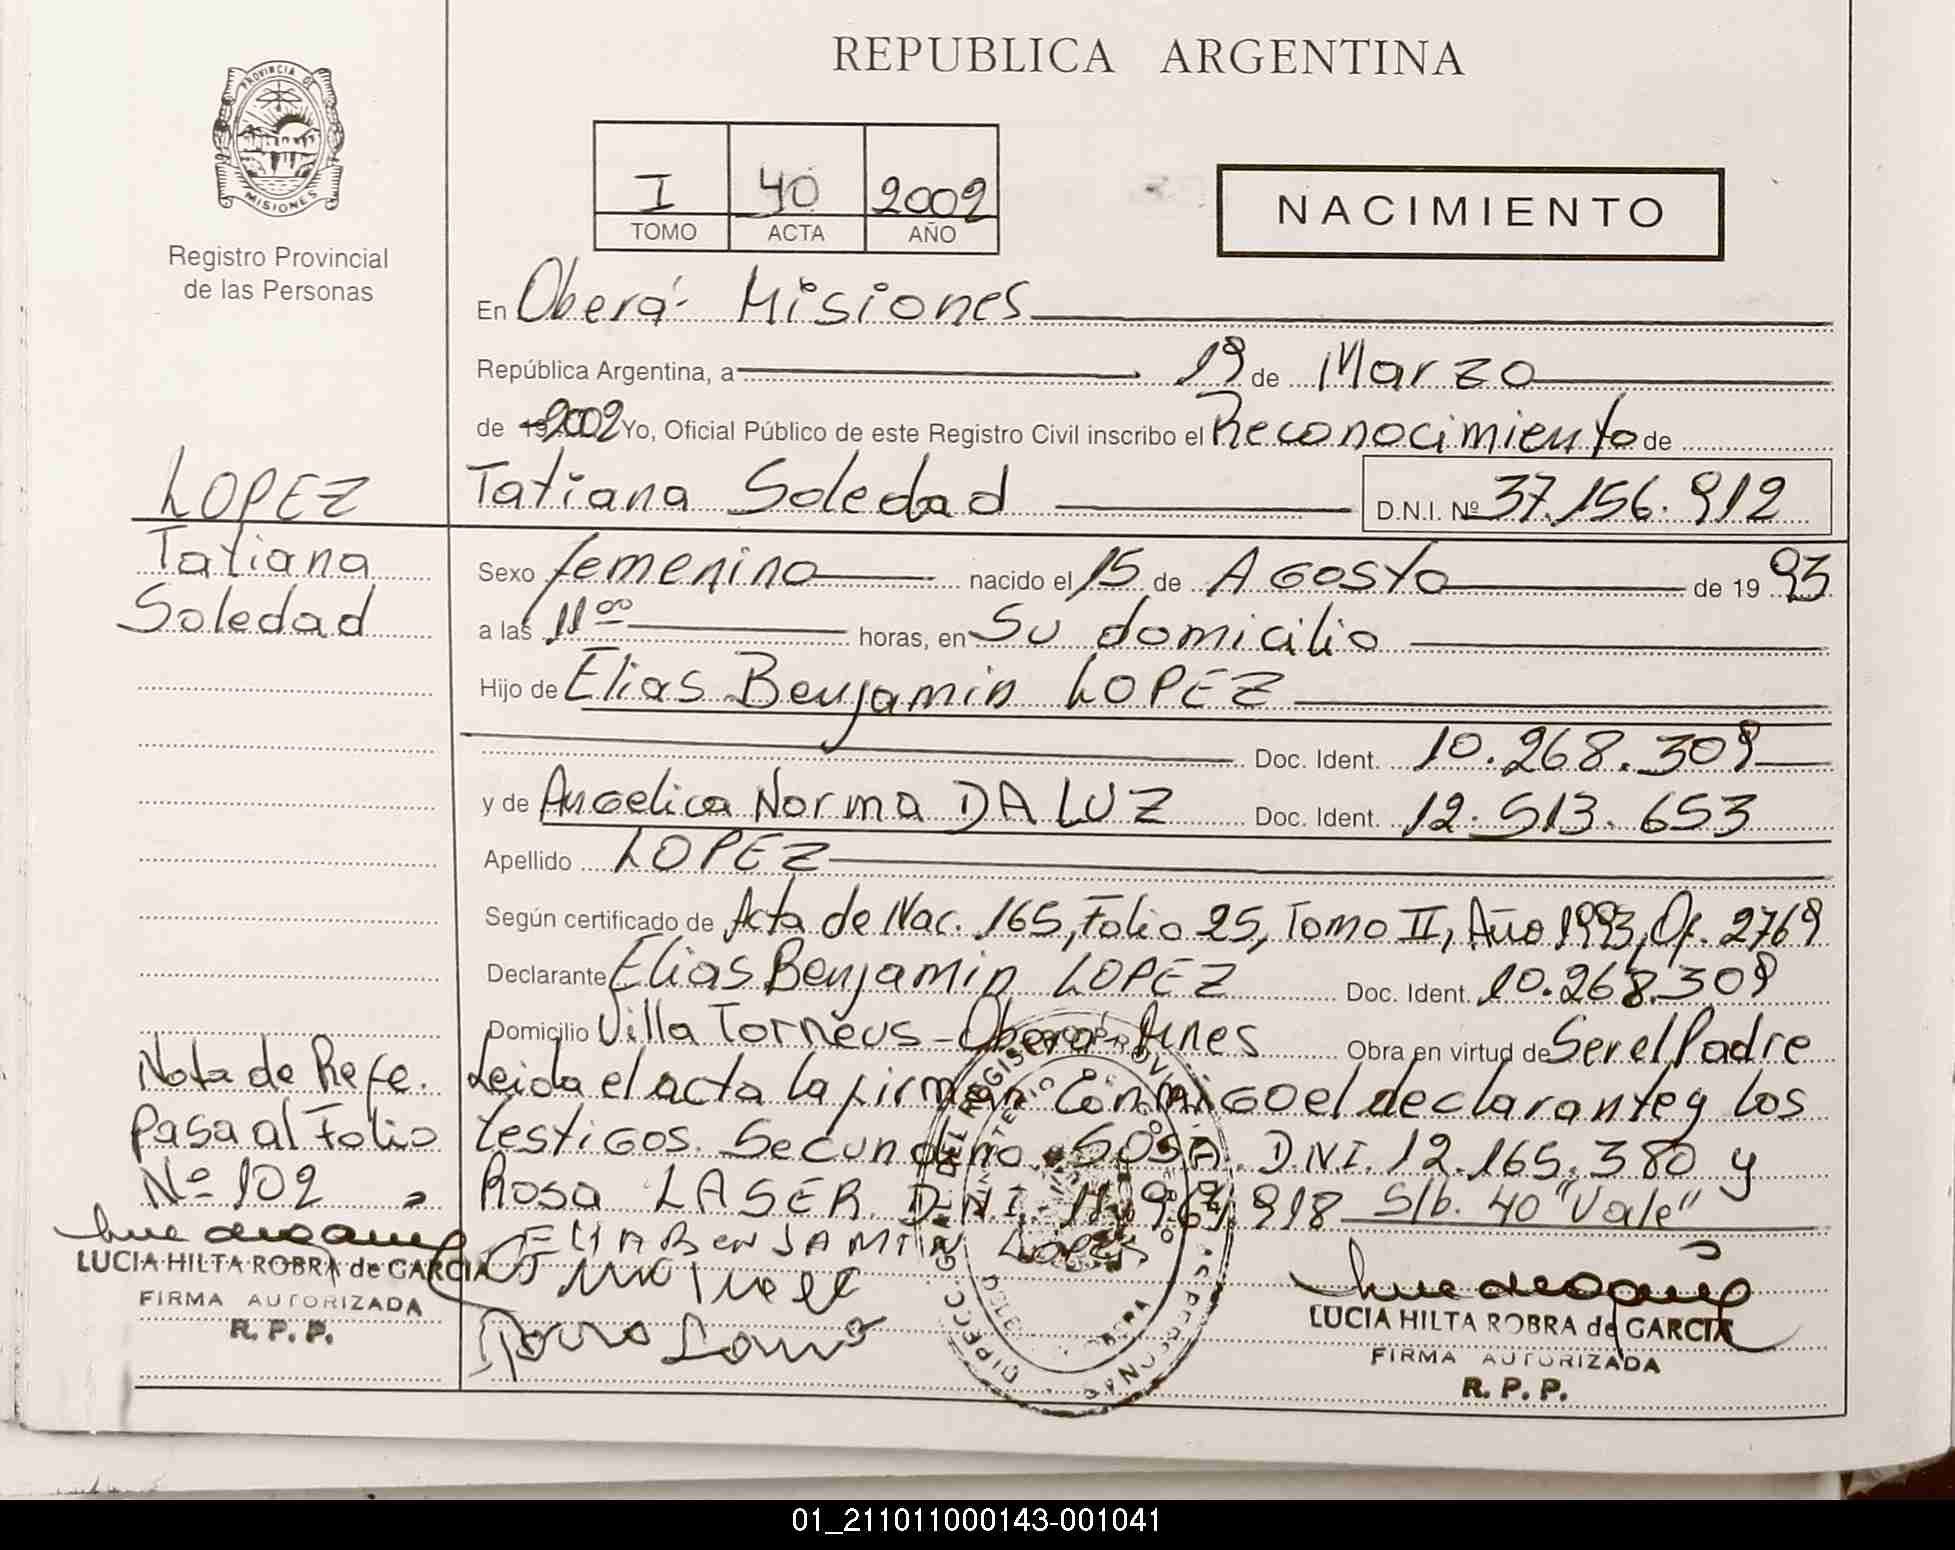 REPUBLICA ARGENTINA
PROVINCIA DE
MISIONES
Registro Provincial
de las Personas
I 40 2002
TOMO ACTA AÑO
NACIMIENTO
En Oberá - Misiones
República Argentina, a 19 de Marzo
de 19 2002 Yo, Oficial Público de este Registro Civil inscribo el Reconocimiento de
Tatiana Soledad D.N.I. Nº 37.156.912
LOPEZ
Tatiana
Soledad
Sexo femenino nacido el 15 de Agosto de 19 93
a las 11 00 horas, en Su domicilio
Hijo de Elias Benjamin LOPEZ
Doc. Ident. 10.268.309
y de Angelica Norma DA LUZ Doc. Ident. 12.513.653
Apellido LOPEZ
Según certificado de Acta de Nac. 165, Folio 25, Tomo II, Año 1993, Of. 2769
Declarante Elias Benjamin LOPEZ Doc. Ident. 10.268.309
Domicilio Villa Torneus - Oberá - Mnes Obra en virtud de Ser el Padre
Leida el acta la firman conmigo el declarante y los
testigos. Secundino SOSA. D.N.I. 12.165.380 y
Rosa LASER. D.N.I. 918 S/b. 40 "Vale"
Nota de Refe.
Pasa al Folio
Nº 102
ELIA BENJAMIN LOPES
LUCIA HILTA ROBRA de GARCIA
FIRMA AUTORIZADA
R. P. P.
LUCIA HILTA ROBRA de GARCIA
FIRMA AUTORIZADA
R. P. P.
01_211011000143-001041